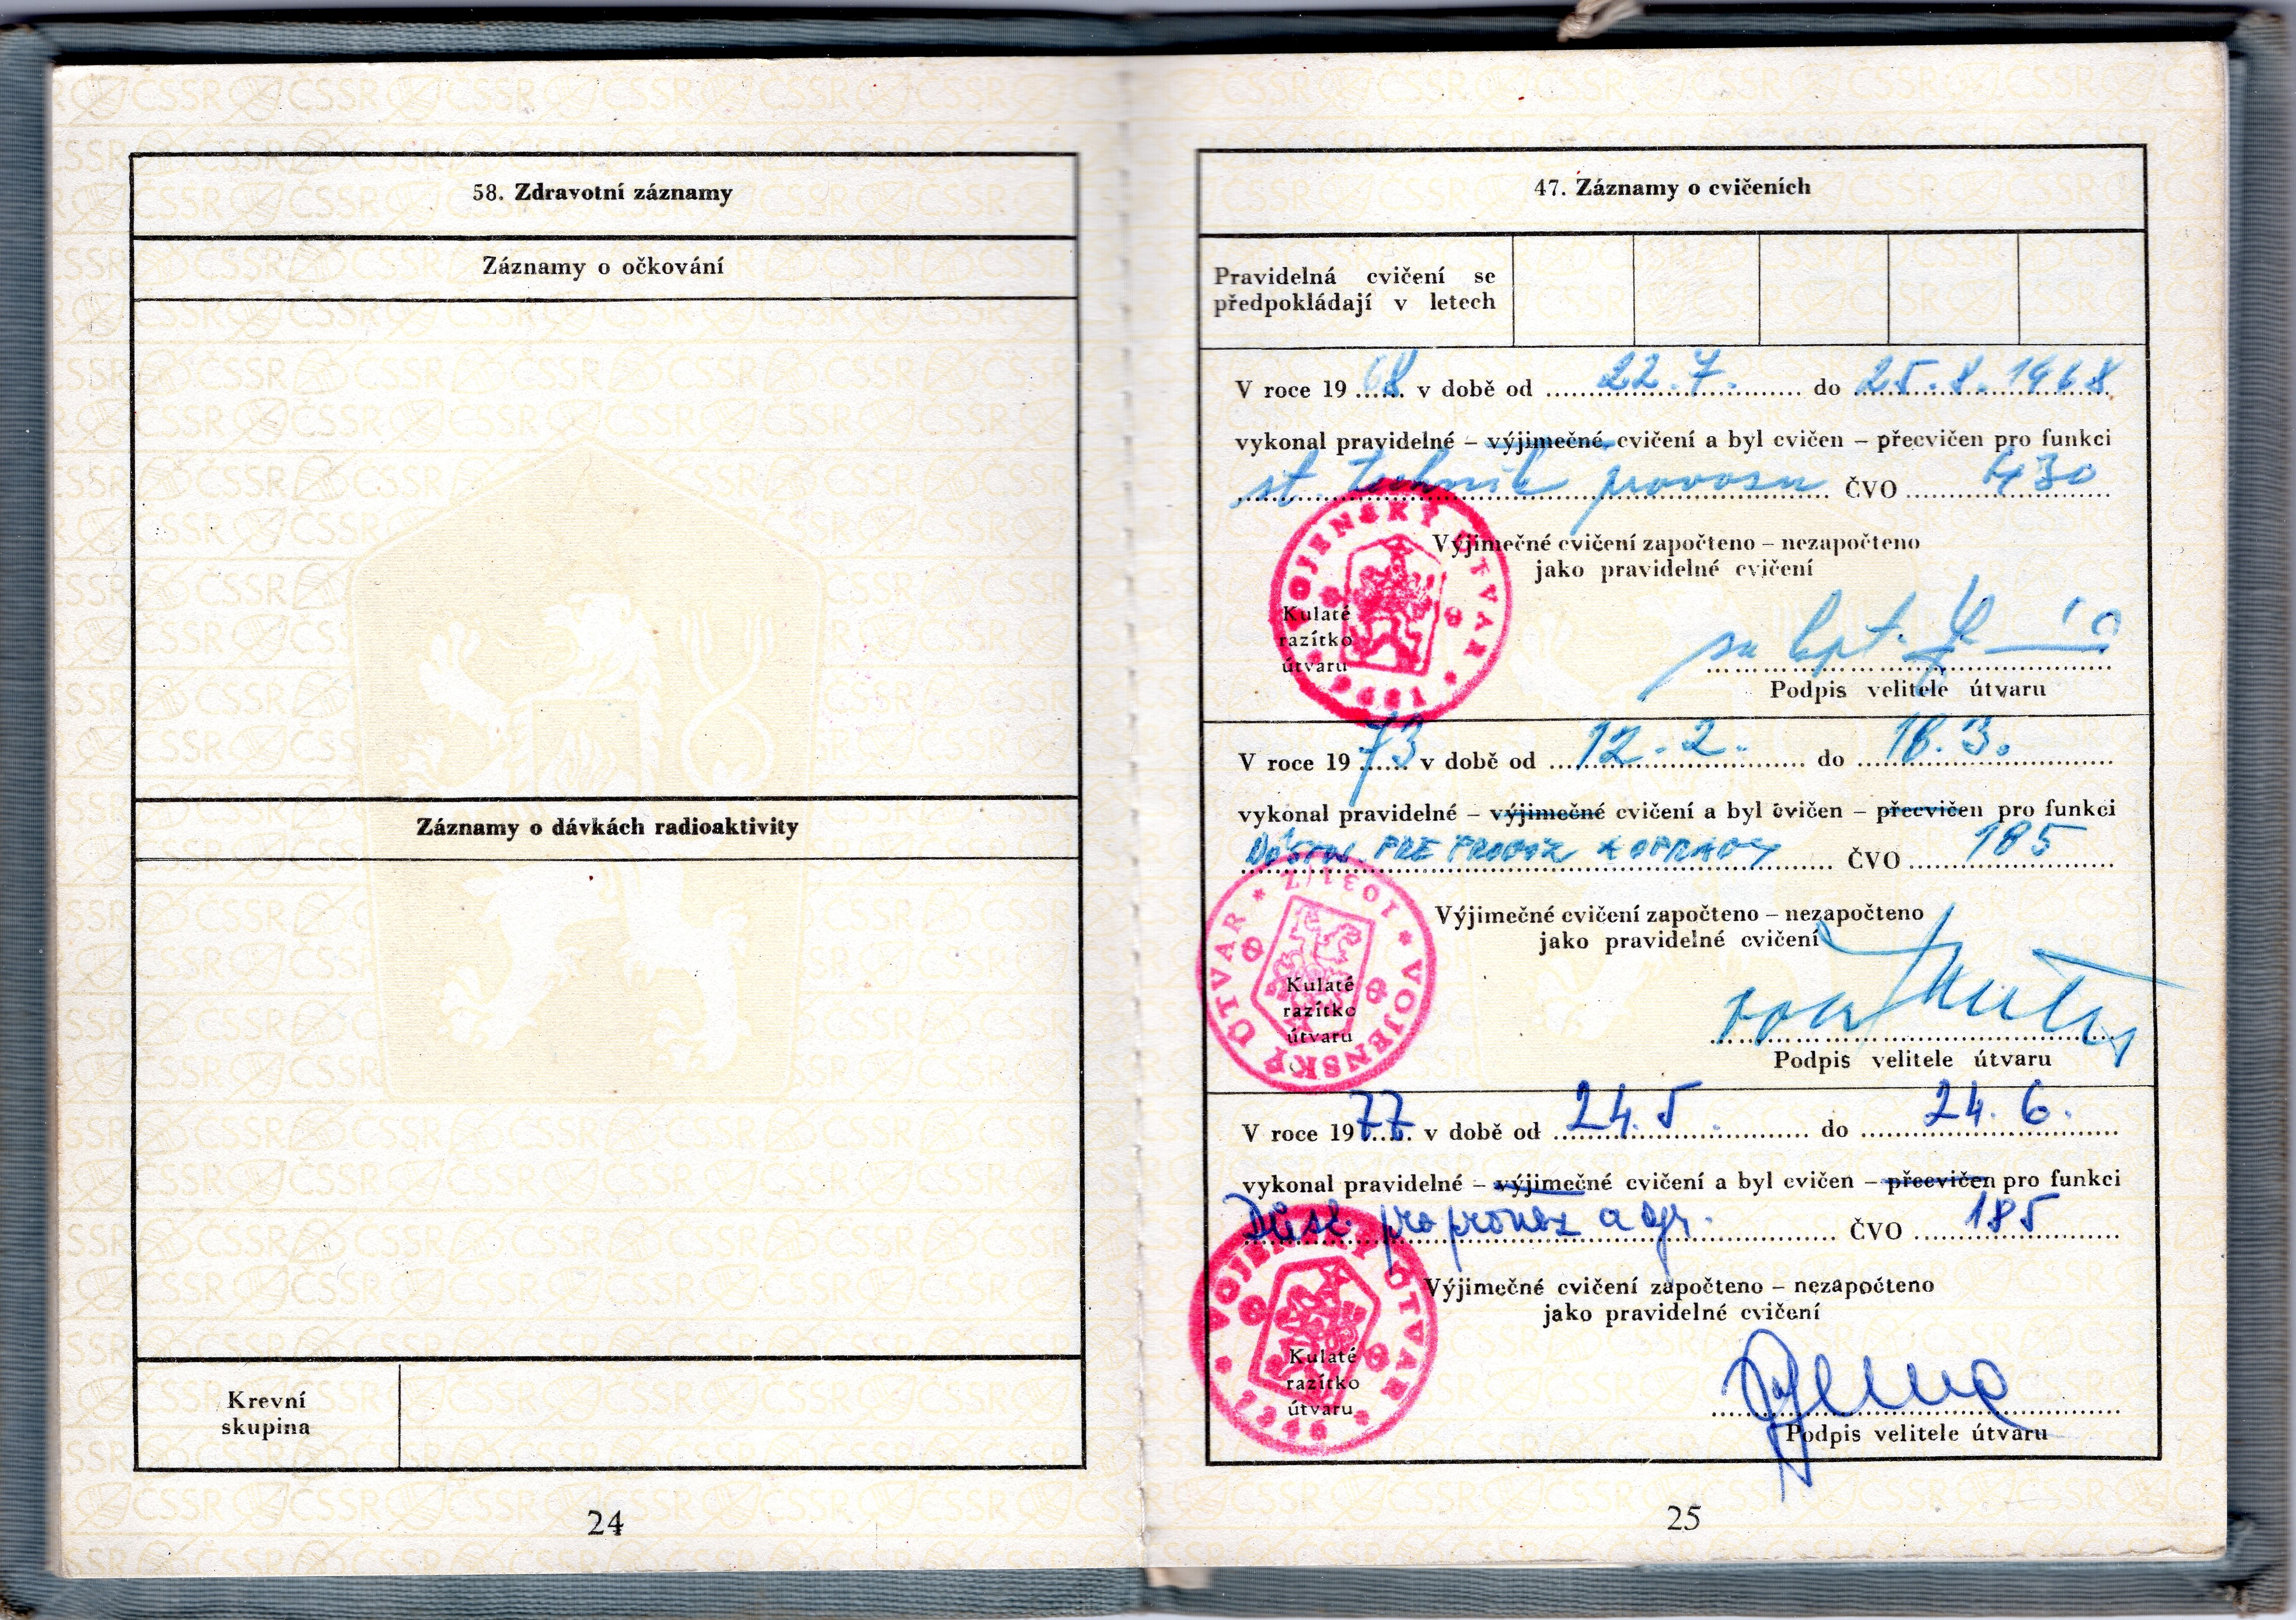 58. Zdravotní záznamy
Záznamy o očkování
Záznamy o dávkách radioaktivity
Krevní
skupina
24
47. Záznamy o cvičeních
Pravidelná cvičení se
předpokládají v letech
V roce 19 68 v době od 22.7. do 25.8.1968
vykonal pravidelné – výjimečné cvičení a byl cvičen – přecvičen pro funkci
st. technik provozu ČVO 430
Výjimečné cvičení započteno – nezapočteno
jako pravidelné cvičení
VOJENSKÝ ÚTVAR
Kulaté
razítko
útvaru
Podpis velitele útvaru
V roce 19 73 v době od 12.2. do 18.3.
vykonal pravidelné – výjimečné cvičení a byl cvičen – přecvičen pro funkci
DÔSTOJ. PRE PREVOZ A OPRAVY ČVO 185
Výjimečné cvičení započteno – nezapočteno
jako pravidelné cvičení
VOJENSKÝ ÚTVAR * 1031/Z *
Kulaté
razítko
útvaru
Podpis velitele útvaru
V roce 19 77 v době od 24.5. do 24.6.
vykonal pravidelné – výjimečné cvičení a byl cvičen – přecvičen pro funkci
Důst. pro provoz a opr. ČVO 185
Výjimečné cvičení započteno – nezapočteno
jako pravidelné cvičení
VOJENSKÝ ÚTVAR
Kulaté
razítko
útvaru
Podpis velitele útvaru
25